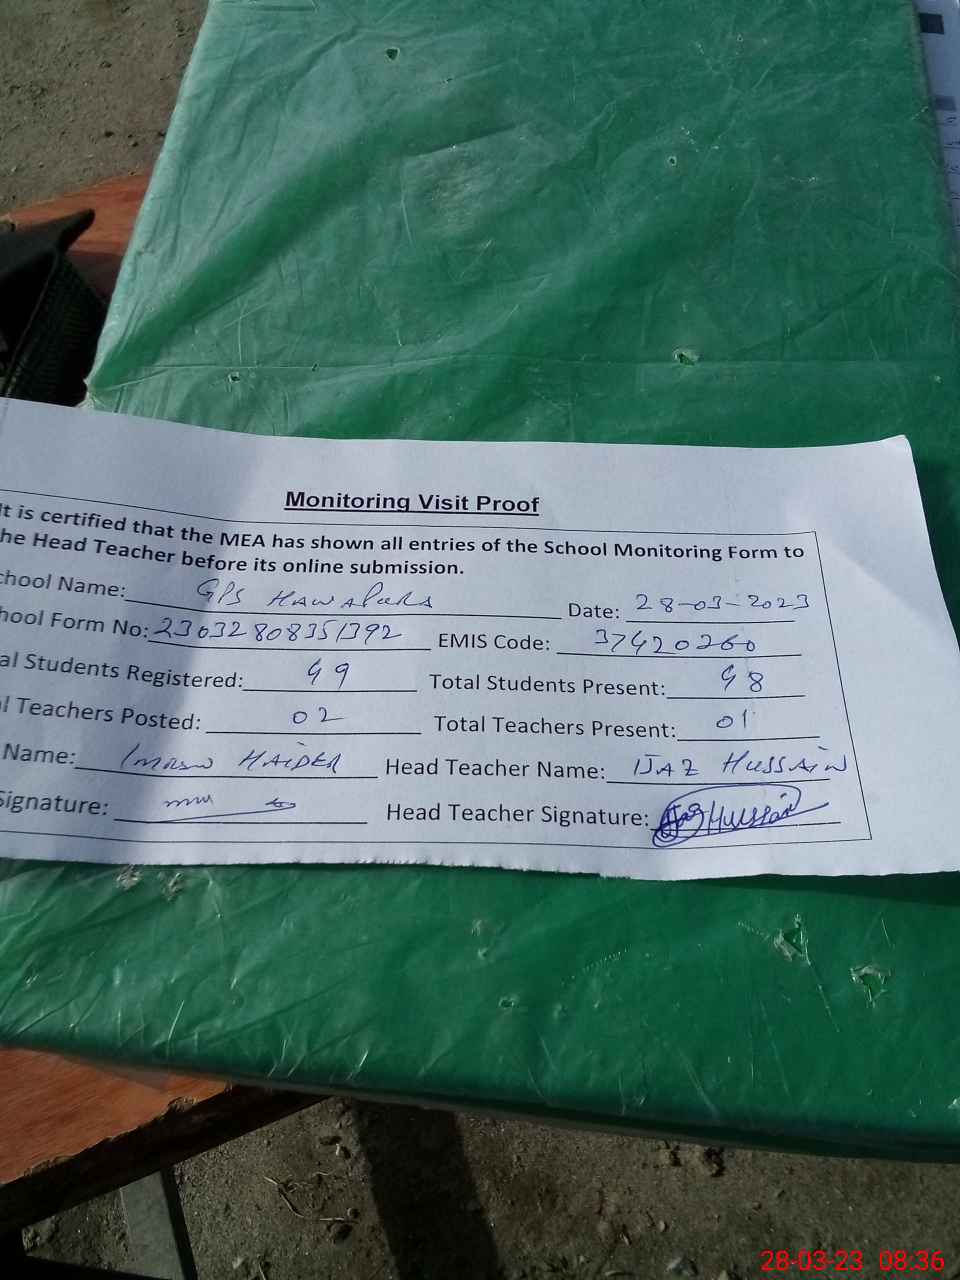 Monitoring Visit Proof
It is certified that the MEA has shown all entries of the School Monitoring Form to
he Head Teacher before its online submission.
chool Name: GPS Date: 28-03-2023
hool Form No: 23032808351392 EMIS Code: 37420260
al Students Registered: 49 Total Students Present: 48
l Teachers Posted: 02 Total Teachers Present: 01
Name: IMRAN HAIDER Head Teacher Name: IJAZ HUSSAIN
Signature: Head Teacher Signature: Ijaz Hussain
28-03-23 08:36